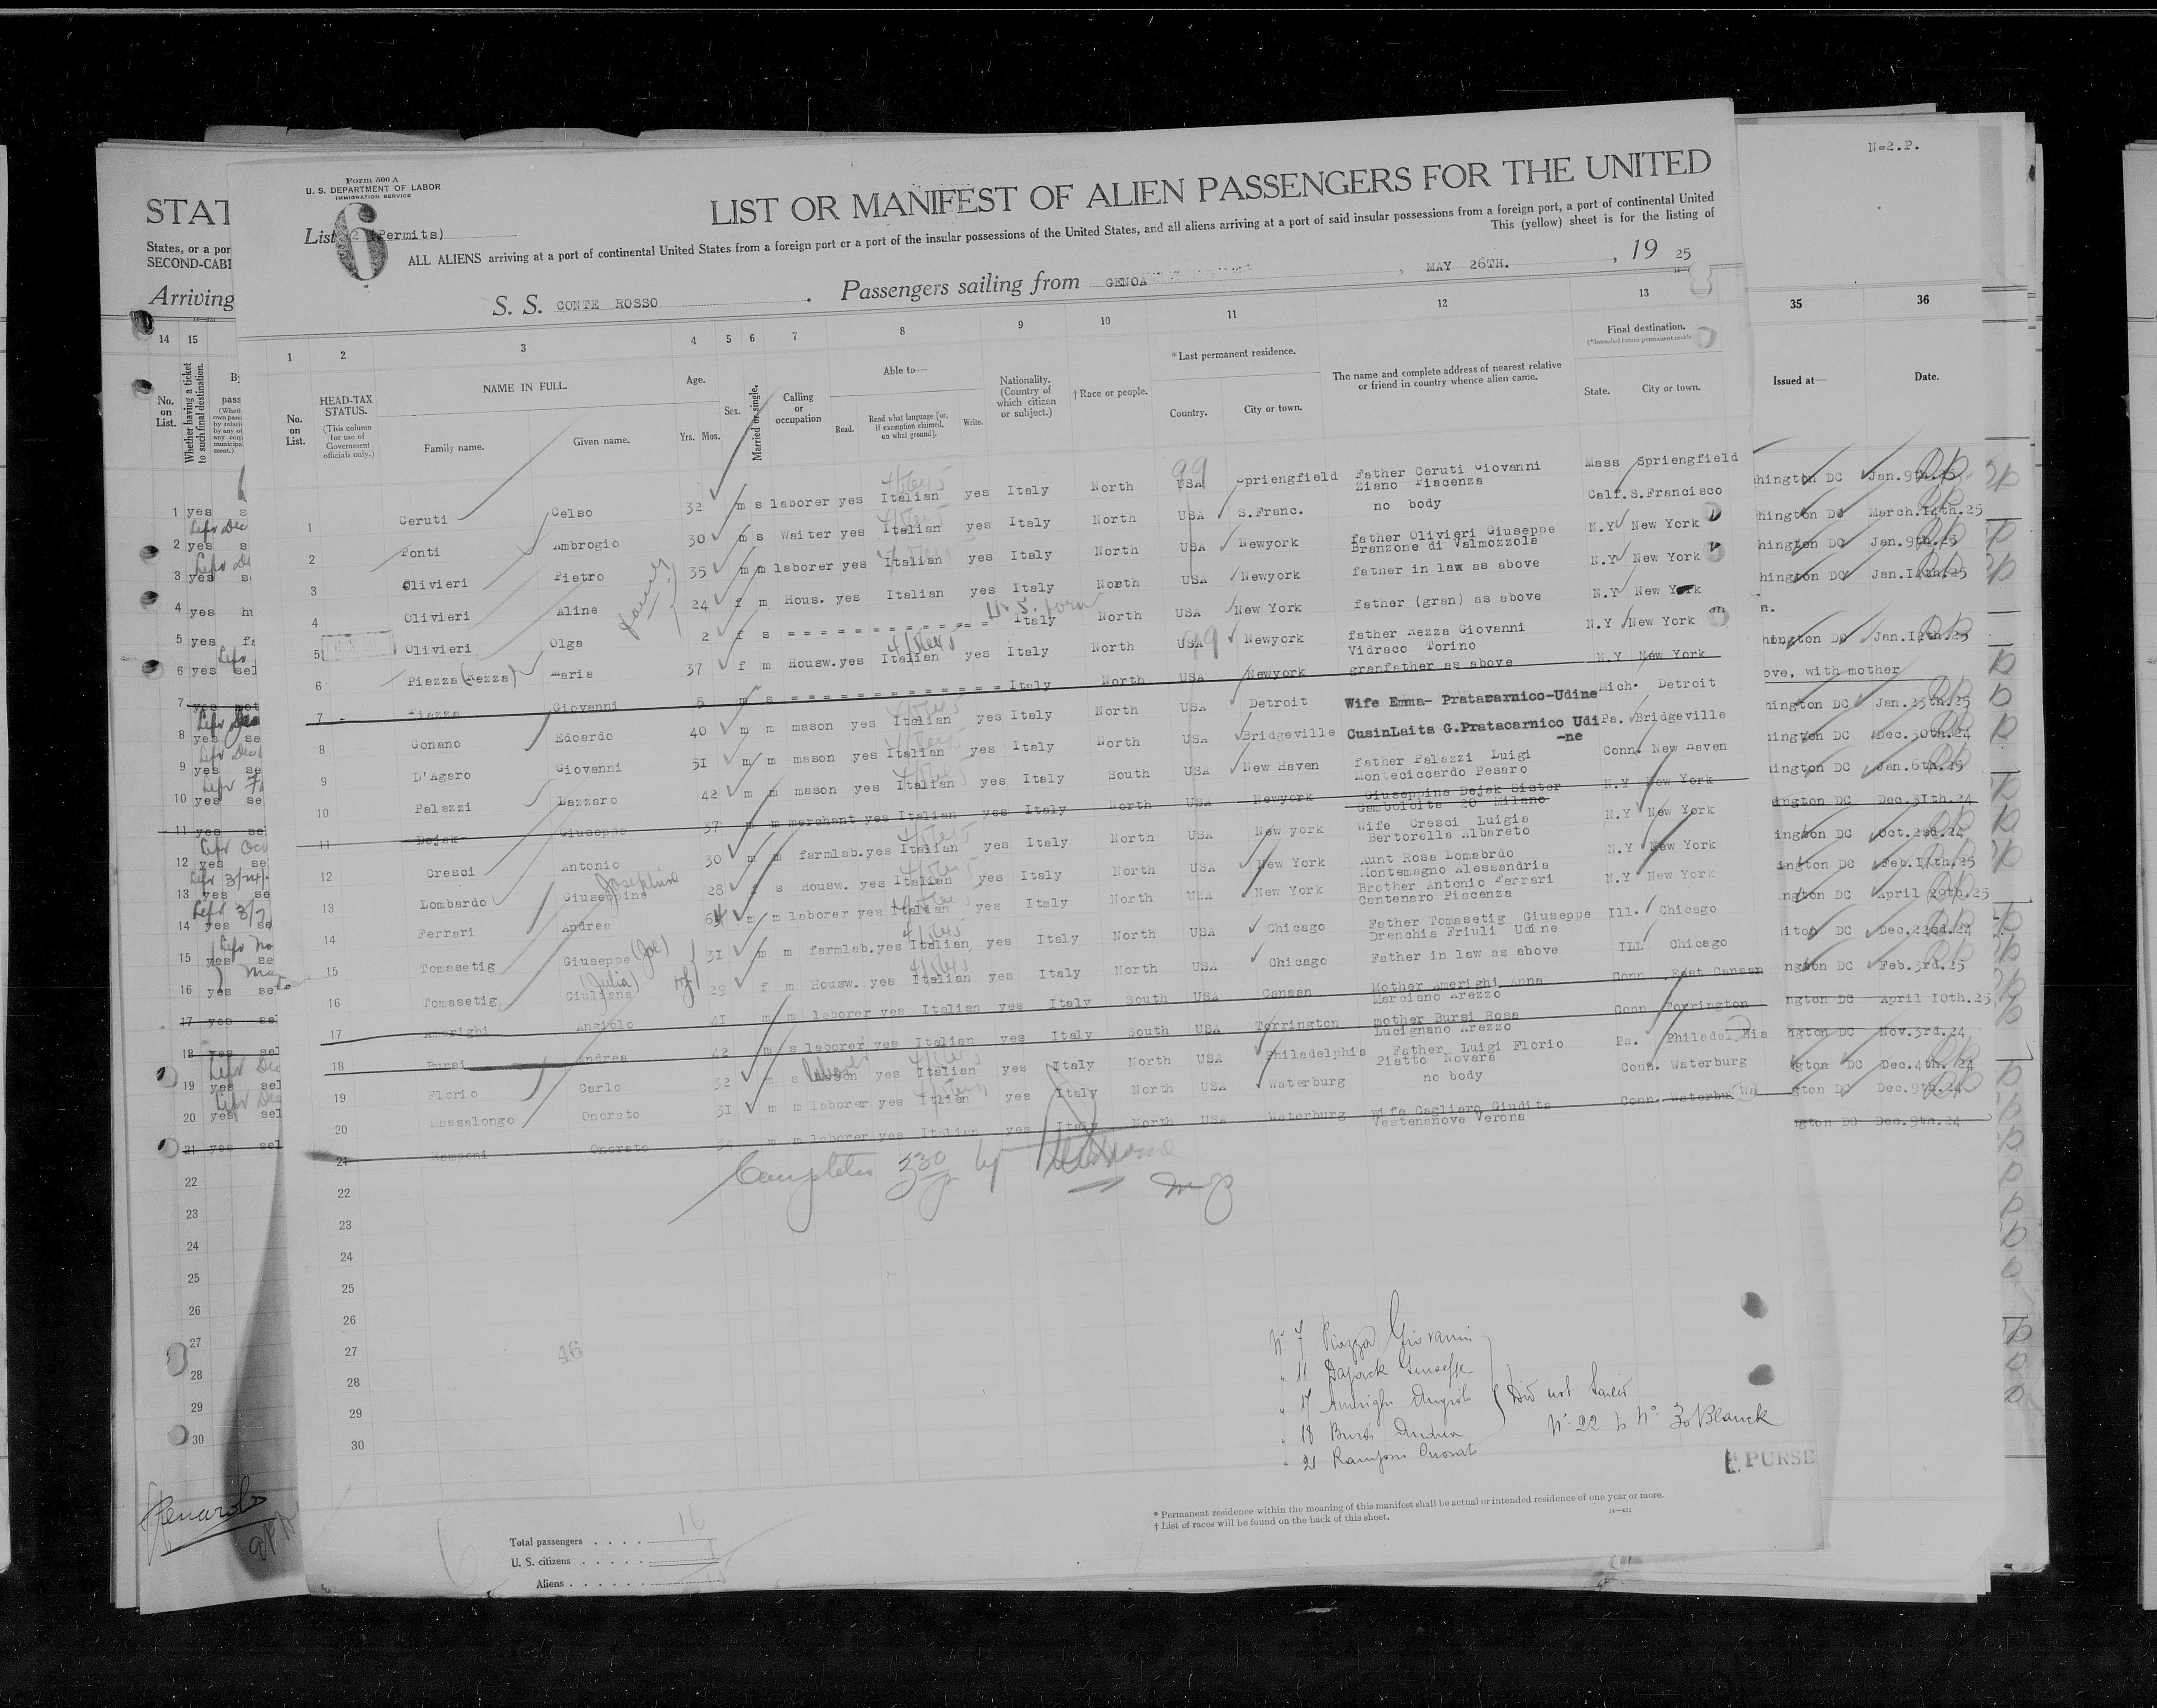 N=2.P.
Form 500 A
U. S. DEPARTMENT OF LABOR
IMMIGRATION SERVICE
STAT
LIST OR MANIFEST OF ALIEN PASSENGERS FOR THE UNITED
List 2 (Permits)
6
States, or a por
SECOND-CABI
ALL ALIENS arriving at a port of continental United States from a foreign port or a port of the insular possessions of the United States, and all aliens arriving at a port of said insular possessions from a foreign port, a port of continental United
This (yellow) sheet is for the listing of
Arriving
S. S. CONTE ROSSO . Passengers sailing from GENOA , MAY 26TH. , 19 25
14 15 1 2 3 4 5 6 7 8 9 10 11 12 13 35 36
No. on List.
Whether having a ticket to such final destination.
No. on List.
HEAD-TAX STATUS.
(This column for use of Government officials only.)
NAME IN FULL.
Family name. Given name.
Age.
Yrs. Mos.
Sex.
Married or single.
Calling or occupation
Able to—
Read. Read what language [or, if exemption claimed, on what ground]. Write.
Nationality. (Country of which citizen or subject.)
† Race or people.
* Last permanent residence.
Country. City or town.
The name and complete address of nearest relative or friend in country whence alien came.
Final destination.
(*Intended future permanent reside
State. City or town.
Issued at— Date.
99
1 Ceruti Celso 32 m s laborer yes Italian yes Italy North USA Spriengfield Father Ceruti Giovanni Ziano Piacenza Mass Spriengfield hington DC Jan.9th.25
2 Ponti Ambrogio 30 m s Waiter yes Italian yes Italy North USA S.Franc. no body Calf. S.Francisco hington DC March.14th.25
3 Olivieri Pietro 35 m m laborer yes Italian yes Italy North USA Newyork father Olivieri Giuseppe Branzone di Valmozzola N.Y New York hington DC Jan.9th.25
4 Olivieri Aline 24 f m Hous. yes Italian yes Italy North USA Newyork father in law as above N.Y New York hington DC Jan.14th.25
5 Olivieri Olga 2 f s Italy North USA New York father (gran) as above N.Y New York
6 Piazza (Rezza) Maria 37 f m Housw. yes Italian yes Italy North USA Newyork father Rezza Giovanni Vidraco Torino N.Y New York hington DC Jan.12th.25
7 Piazza Giovanni 5 m s Italy North USA Newyork granfather as above N.Y New York ove, with mother
8 Gonano Edoardo 40 m m mason yes Italian yes Italy North USA Detroit Wife Emma- Pratacarnico-Udine Mich. Detroit hington DC Jan.23th.25
9 D'Agaro Giovanni 51 m m mason yes Italian yes Italy North USA Bridgeville CusinLaita G.Pratacarnico Udi -ne Pa. Bridgeville hington DC Dec.30th.24
10 Palazzi Lazzaro 42 m m mason yes Italian yes Italy South USA New Haven father Palazzi Luigi Monteciccardo Pesaro Conn. New Haven hington DC Jan.6th.25
11 Dejak Giuseppe 37 m m merchant yes Italian yes Italy North USA Newyork Giuseppina Dejak Sister Gamboloita 20 Milano N.Y New York ington DC Dec.31th.24
12 Cresci Antonio 30 m m farmlab. yes Italian yes Italy North USA New york Wife Cresci Luigia Bertorella Albareto N.Y New York ington DC Oct.22d.24
13 Lombardo Giuseppina Josephine 28 f s Housw. yes Italian yes Italy North USA New York Aunt Rosa Lomabrdo Montemagno Alessandria N.Y New York ington DC Feb.17th.25
14 Ferrari Andrea 64 m m laborer yes Italian yes Italy North USA New York Brother Antonio Ferrari Centenaro Piacenza N.Y New York ngton DC April 29th.25
15 Tomasetig Giuseppe (Joe) 31 m m farmlab. yes Italian yes Italy North USA Chicago Father Tomasetig Giuseppe Drenchia Friuli Udine Ill. Chicago DC Dec.22sd.24
16 Tomasetig Giuliana (Julia) 29 f m Housw. yes Italian yes Italy North USA Chicago Father in law as above ILL Chicago ngton DC Feb.3rd.25
17 Amerighi Angiolo 41 m m laborer yes Italian yes Italy South USA Canaan Mother Amerighi Anna Marciano Arezzo Conn East Canaan ngton DC April 10th.25
18 Bursi Andrea 42 m s laborer yes Italian yes Italy South USA Torrington mother Bursi Rosa Lucignano Arezzo Conn Torrington ngton DC Nov.3rd.24
19 Florio Carlo 32 m s mason laborer yes Italian yes Italy North USA Philadelphia Father Luigi Florio Piatto Novara Pa. Philadelphia gton DC Dec.4th.24
20 Massalongo Onorato 31 m m laborer yes Italian yes Italy North USA Waterburg no body Conn. Waterburg gton DC Dec.9th.24
21 Ramponi Onorato 34 m m laborer yes Italian yes Italy North USA Waterburg Wife Cagliaro Giudita Vestenanove Verona Conn. Waterbu ngton DC Dec.9th.24
Completed 330 by
22
23
24
25
26
27
28
29
30
46
No 7 Piazza Giovanni
" 11 Dajack Giuseppe
" 17 Amerighi Angiolo
" 18 Bursi Andrea
" 21 Ramponi Onorato
Did not Sailed
No 22 to No 30 Blanck
PURSE
* Permanent residence within the meaning of this manifest shall be actual or intended residence of one year or more.
† List of races will be found on the back of this sheet.
Total passengers . . . . 16
U. S. citizens . . . . . 1
Aliens . . . . . . 15